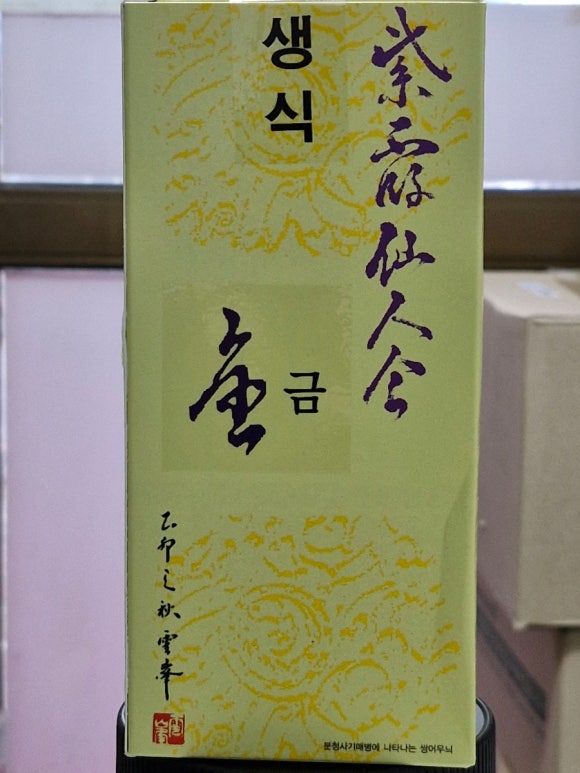 紫霞仙人会
생식
金
금
乙卯之秋雲峯
분청사기매병에 나타나는 쌍어무늬